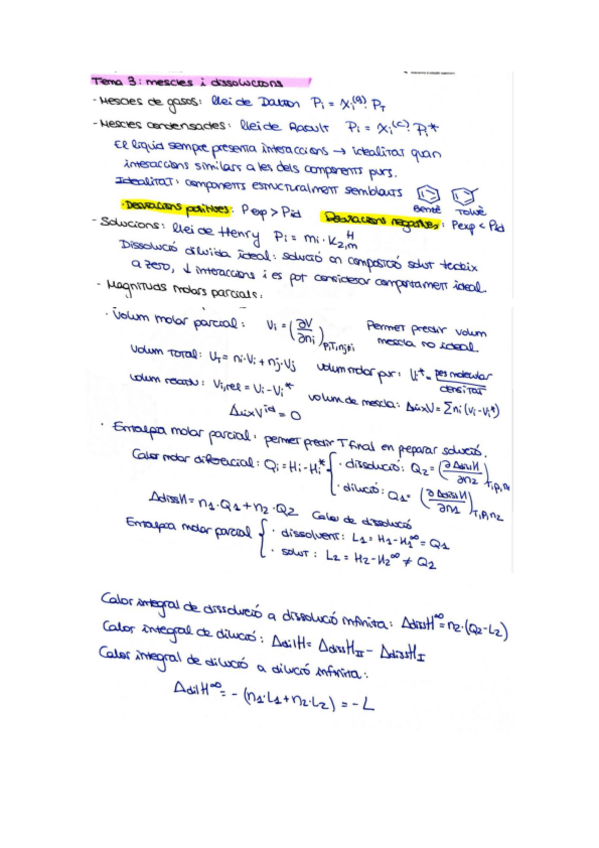 Tema 3: mescles i dissolucions
- Mescles de gasos: llei de Dalton Pi = xi(g) · PT
- Mescles condensades: llei de Raoult Pi = xi(c) · Pi*
El líquid sempre presenta interaccions → idealitat quan
interaccions similars a les dels components purs.
Idealitat: components estructuralment semblants
Benzè Toluè
· Desviacions positives: Pexp > Pid Desviacions negatives: Pexp < Pid
- Solucions: llei de Henry Pi = mi · K2,m^H
Dissolució diluida ideal: solució on composició solut tendeix
a zero, ↓ interaccions i es pot considerar comportament ideal.
- Magnituds molars parcials:
· Volum molar parcial: Vi = (∂V/∂ni)P,T,nj≠i Permet predir volum
mescla no ideal.
Volum total: VT = ni·Vi + nj·Vj volum molar pur: Vi* = pes molecular/densitat
volum relatiu: Vi,rel = Vi - Vi* volum de mescla: ΔmixV = Σni(Vi - Vi*)
ΔmixV^id = 0
· Entalpia molar parcial: permet predir T final en preparar solució.
Calor molar diferencial: Qi = Hi - Hi* { · dissolució: Q2 = (∂ΔdissH/∂n2)T,P,n1
· dilució: Q1 = (∂ΔdissH/∂n1)T,P,n2
ΔdissH = n1·Q1 + n2·Q2 Calor de dissolució
Entalpia molar parcial { · dissolvent: L1 = H1 - H1^∞ = Q1
· solut: L2 = H2 - H2^∞ ≠ Q2
Calor integral de dissolució a dissolució infinita: ΔdissH^∞ = n2·(Q2-L2)
Calor integral de dilució: ΔdilH = ΔdissHII - ΔdissHI
Calor integral de dilució a dilució infinita:
ΔdilH^∞ = - (n1·L1 + n2·L2) = - L